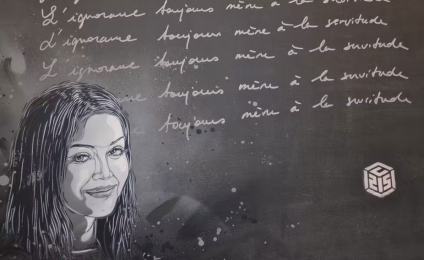 L'ignorance toujours mène à la servitude
d'ignorance toujours mène à la servitude
L'ignorance toujours mène à la servitude
ce toujours mène à la servitude
toujours mène à la servitude
C215